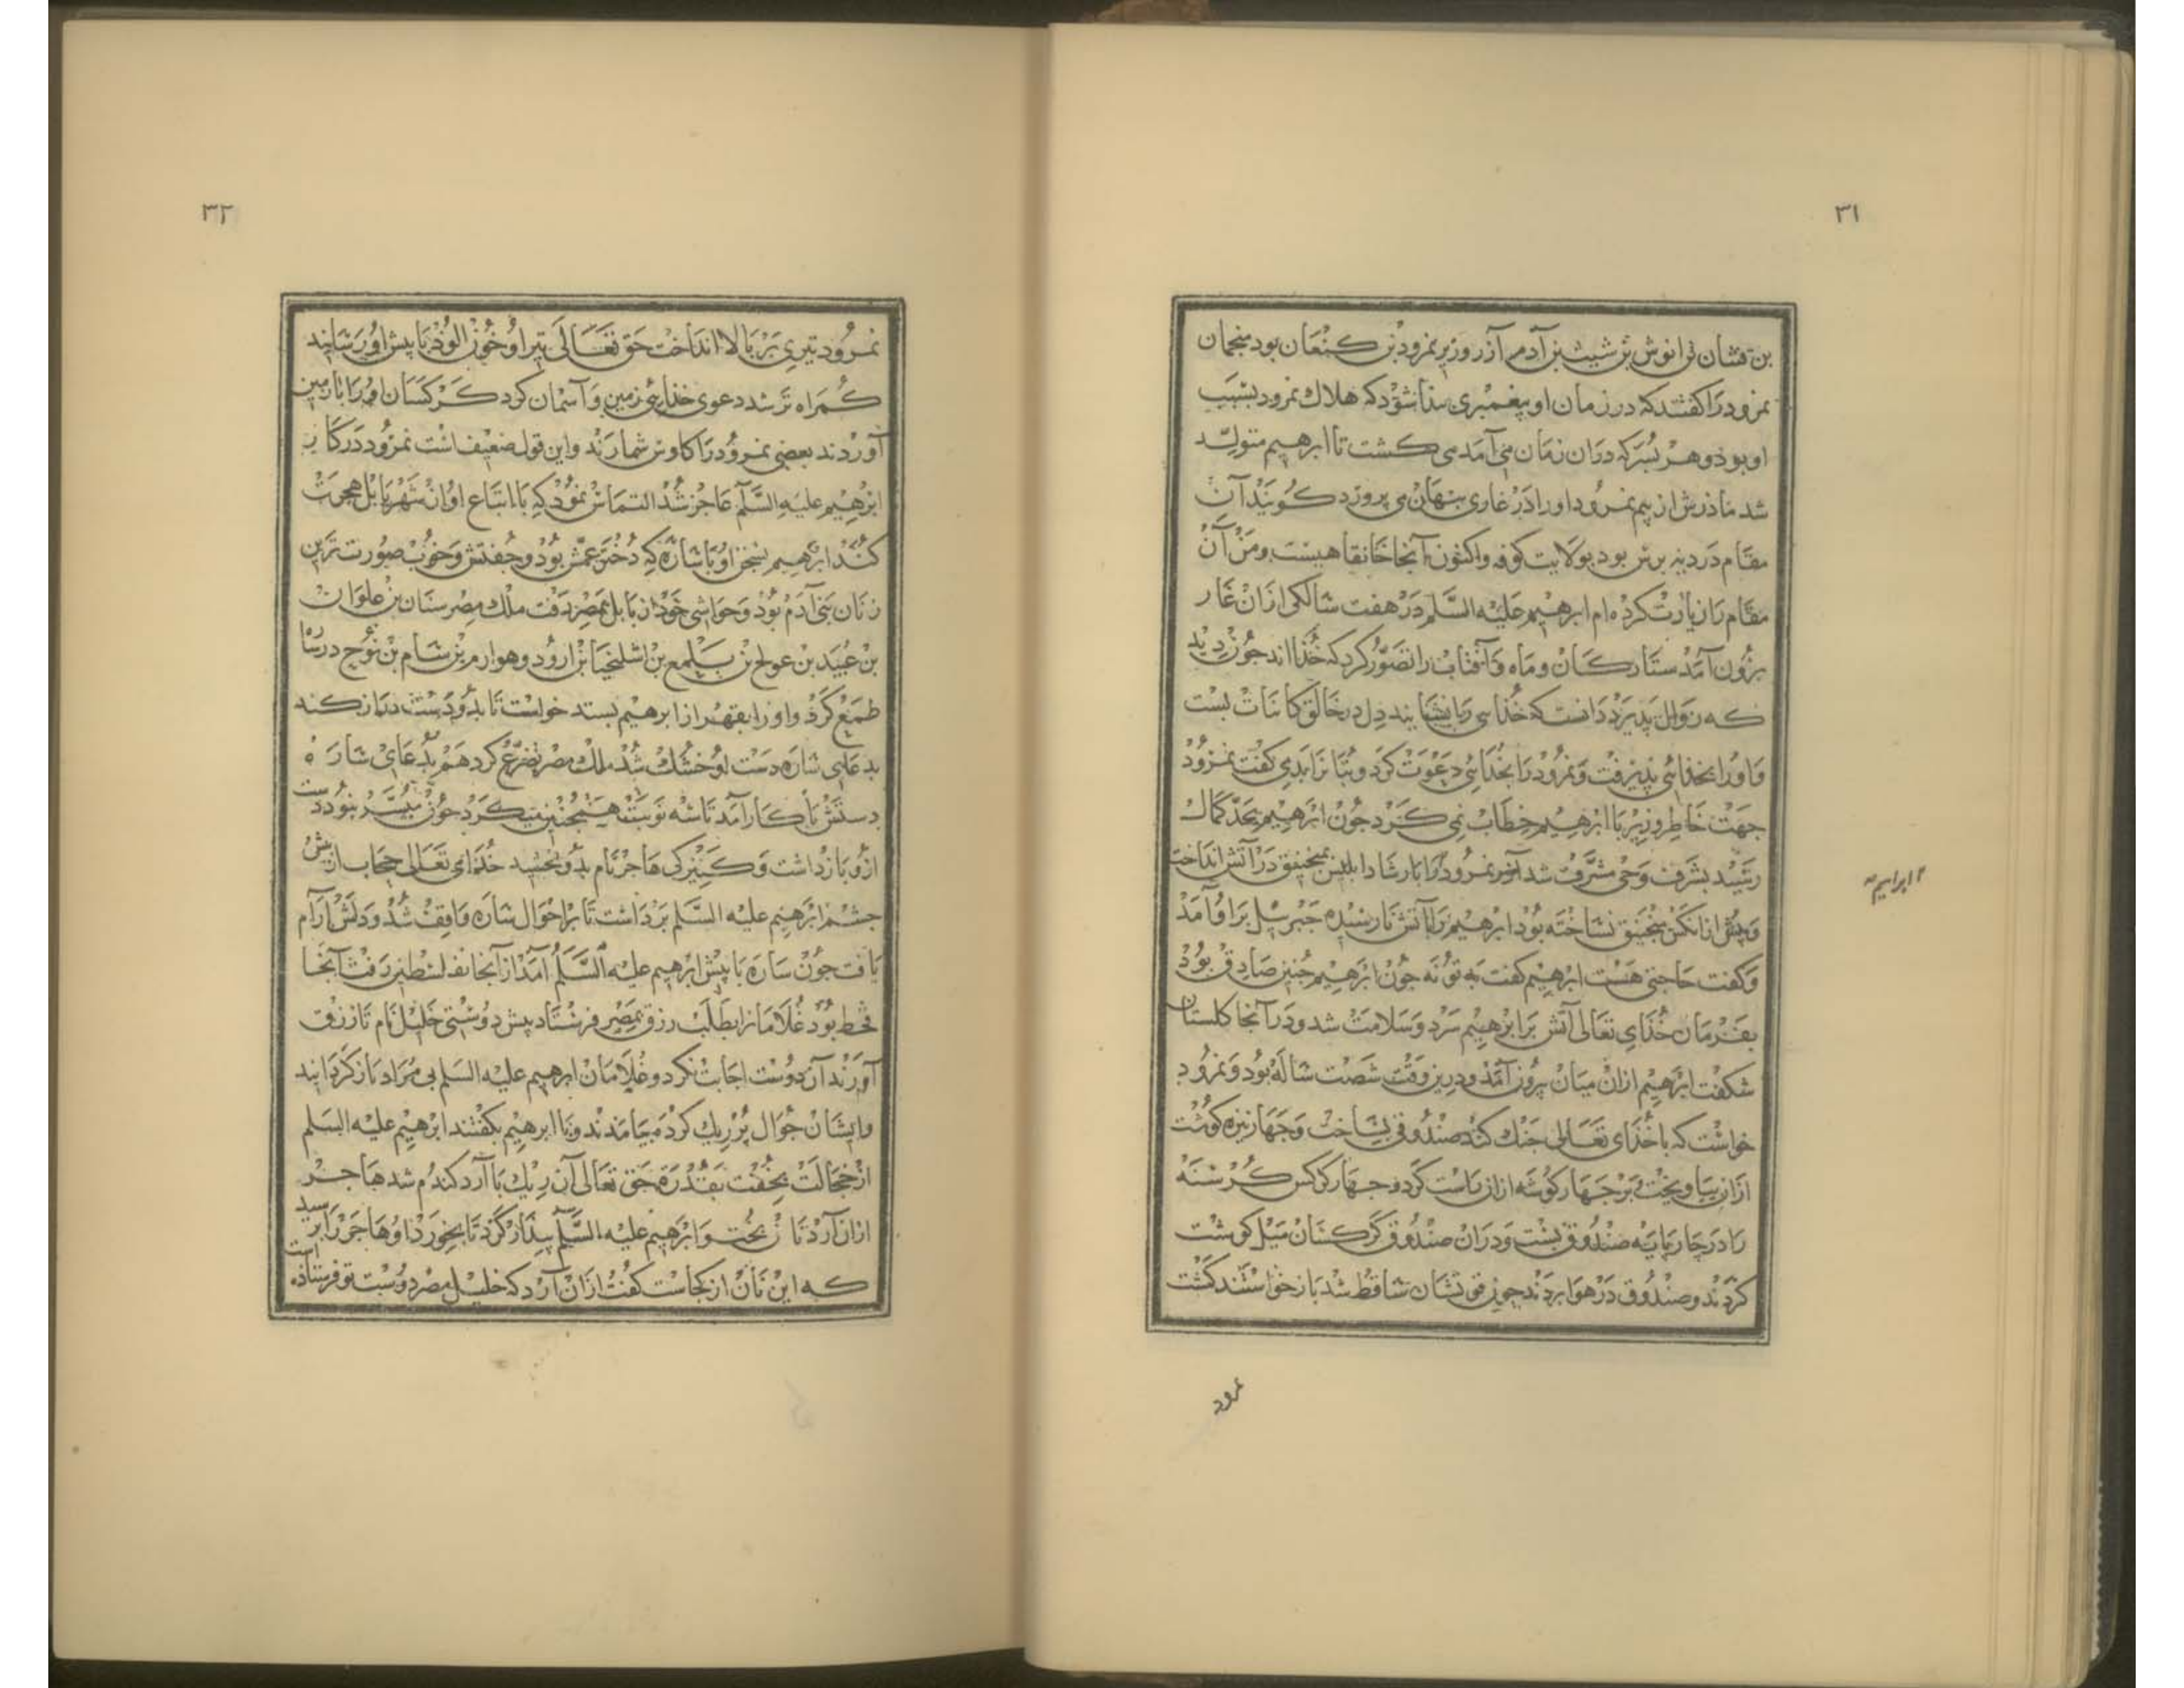 ٣١
بن قشان بن انوش بن شیث بن آدم آزر وزیر نمرود بن کنعان بود منجمان
نمرود را کفتند که در زمان او پیغمبری بیذا شود که هلاك نمرود بسبب
او بوذ و هر بسر که در ان زمان می آمد می کشت تا ابرهیم متولد
شد ماذرش از بیم نمرود او را در غاری بنهان می پرورد کویند آن
مقام در دیه برس بود بولایت کوفه و اکنون آنجا خانقاهیست و من آن
مقام را زیارت کرده ام ابرهیم علیه السلم در هفت سالکی ازان غار
برون آمد ستارکان و ماه و آفتاب را تصور کرد که خذا اند جون دید
که زوال پذیرد دانست که خذایی را نشایند دل در خالق کاینات بست
و او را بخذائی پذیرفت و نمرود را بخذائی دعوت کرد و بتانرا بدی کفت نمرود
جهت خاطر وزیر با ابرهیم خطاب نمی کرد جون ابرهیم بحد کمال
رسید بشرف وحی مشرف شد آخر نمرود او را بارشاد ابلیس بمنجنیق در آتش انداخت
و پیش ازان کس منجنیق نساخته بود ابرهیم را بآتش نارسیده جبرییل بر او آمد
و کفت حاجتی هست ابرهیم کفت به تو نه جون ابرهیم جنین صادق بوذ
بفرمان خذای تعالی آتش بر ابرهیم سرد و سلامت شد و در آنجا کلستان
شکفت ابرهیم ازان میان برون آمد و درین وقت شصت ساله بود و نمرود
خواست که با خدای تعالی جنك کند صندوقی بساخت و جهار نیزه کوشت
ازان بیاویخت و بر جهار کوشه ازان راست کرد و جهار کرکس کرسنه
را در چار پایه صندوق بست و دران صندوق کرکسان میل کوشت
کردند و صندوق در هوا بردند جون قوتشان ساقط شد باز خواستند کشت
نمرود
ابراهیم
٣٢
نمرود تیری بر بالا انداخت حق تعالی تیر او خون الوذ با پیش او رسانید
کمراه تر شد دعوی خذایئ زمین و آسمان کرد کرکسان او را با زمین
آوردند بعضی نمرود را کاوس شمارند و این قول ضعیف است نمرود در کار
ابرهیم علیه السلم عاجز شد التماس نمود که با اتباع او از شهر بابل هجرت
کند ابرهیم بسخن او با ساره که دختر عمش بود و جفتش و خوب صورت ترین
زنان بنی آدم بود و حواشی خود از بابل بمصر رفت ملك مصر سنان بن علوان
بن عبید بن عولج بن یسلمع بن اشلیخیا بن ارود و هو ارم بن سام بن نوح در سارا
طمع کرد و او را بقهر از ابرهیم بستد خواست تا بدو دست دراز کند
بدعای ساره دست او خشك شد ملك مصر تضرع کرد هم بدعای ساره
دستش با کار آمد تا سه نوبت همجنین میکرد جون میسر نبود دست
ازو باز داشت و کنیزکی هاجر نام بدو بخشید خدای تعالی حجاب از پیش
جشم ابرهیم علیه السلم برداشت تا بر احوال ساره واقف شد و دلش آرام
یافت جون ساره با پیش ابرهیم علیه السلم آمد از آنجا بفلسطین رفت آنجا
قحط بود غلامانرا بطلب رزق بمصر فرستاد پیش دوستی خلیل نام تا رزق
آورند آن دوست اجابت نکرد و غلامان ابرهیم علیه السلم بی مراد باز کردانید
و ایشان جوال پر ریك کرده بیامدند و با ابرهیم بکفتند ابرهیم علیه السلم
از خجالت بخفت بقدرة حق تعالی آن ریك با آرد کندم شد هاجر
ازان آرد نان بخت و ابرهیم علیه السلم بیدار کرد تا بخورد او هاجر را برسید
که این نان از کجاست کفت ازان آرد که خلیل مصر دوست تو فرستاذه است